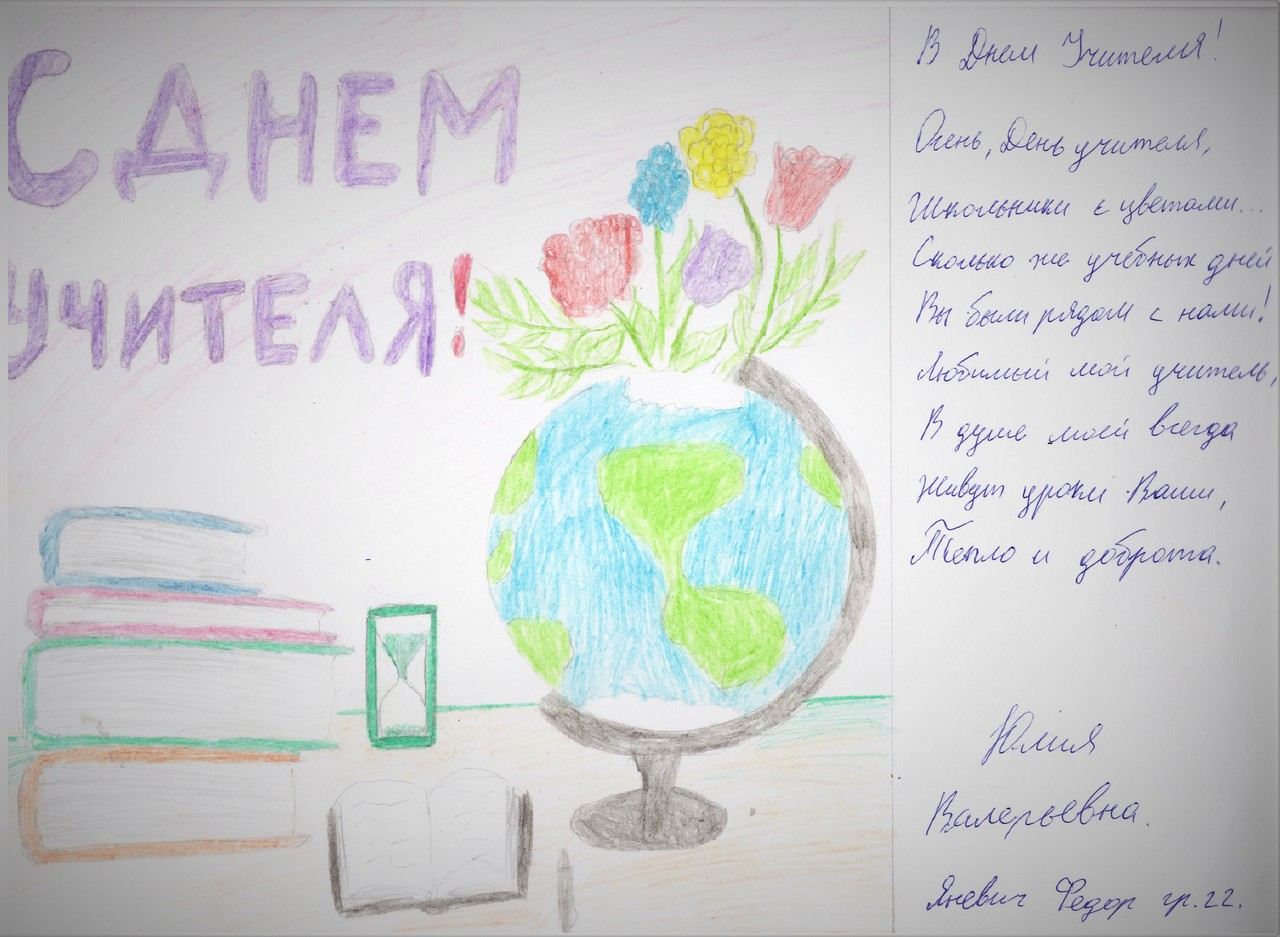 С ДНЕМ
УЧИТЕЛЯ!
В Днем Учителя!
Осень, День учителя,
Школьники с цветами...
Сколько же учебных дней
Вы были рядом с нами!
Любимый мой учитель,
В душе моей всегда
Живут уроки Ваши,
Тепло и доброта.
Юлия
Валерьевна.
Яневич Федор гр.22.